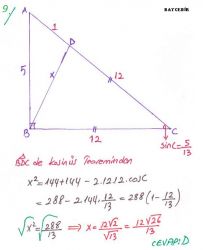 9)
BATCEBİR
A
1
D
x
12
B
12
C
sinC=5/13
BDC de kosinüs teoreminden
x²=144+144-2.12.12.cosC
=288-2.144.12/13=288(1-12/13)
√x²=√288/13 ⇒ x=12√2/√13=12√26/13
CEVAP:D